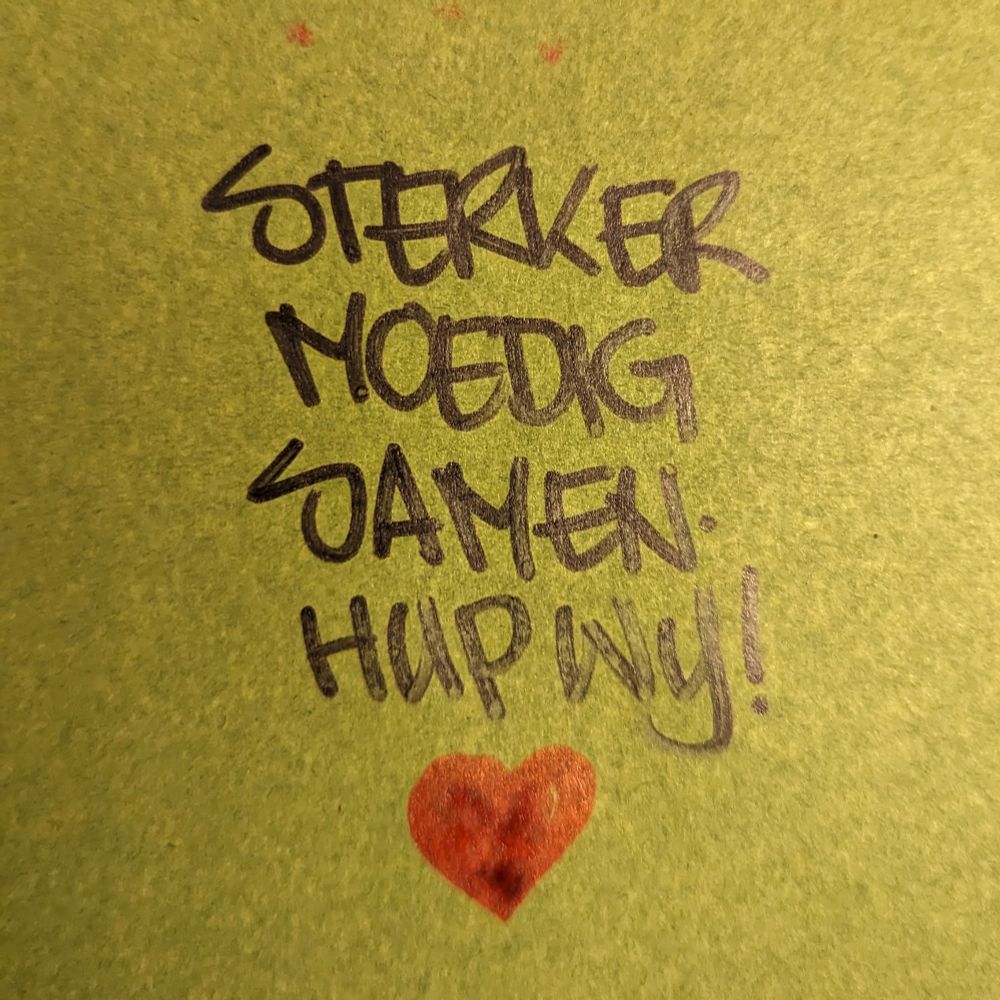 STERKER
MOEDIG
SAMEN.
HUP WY!